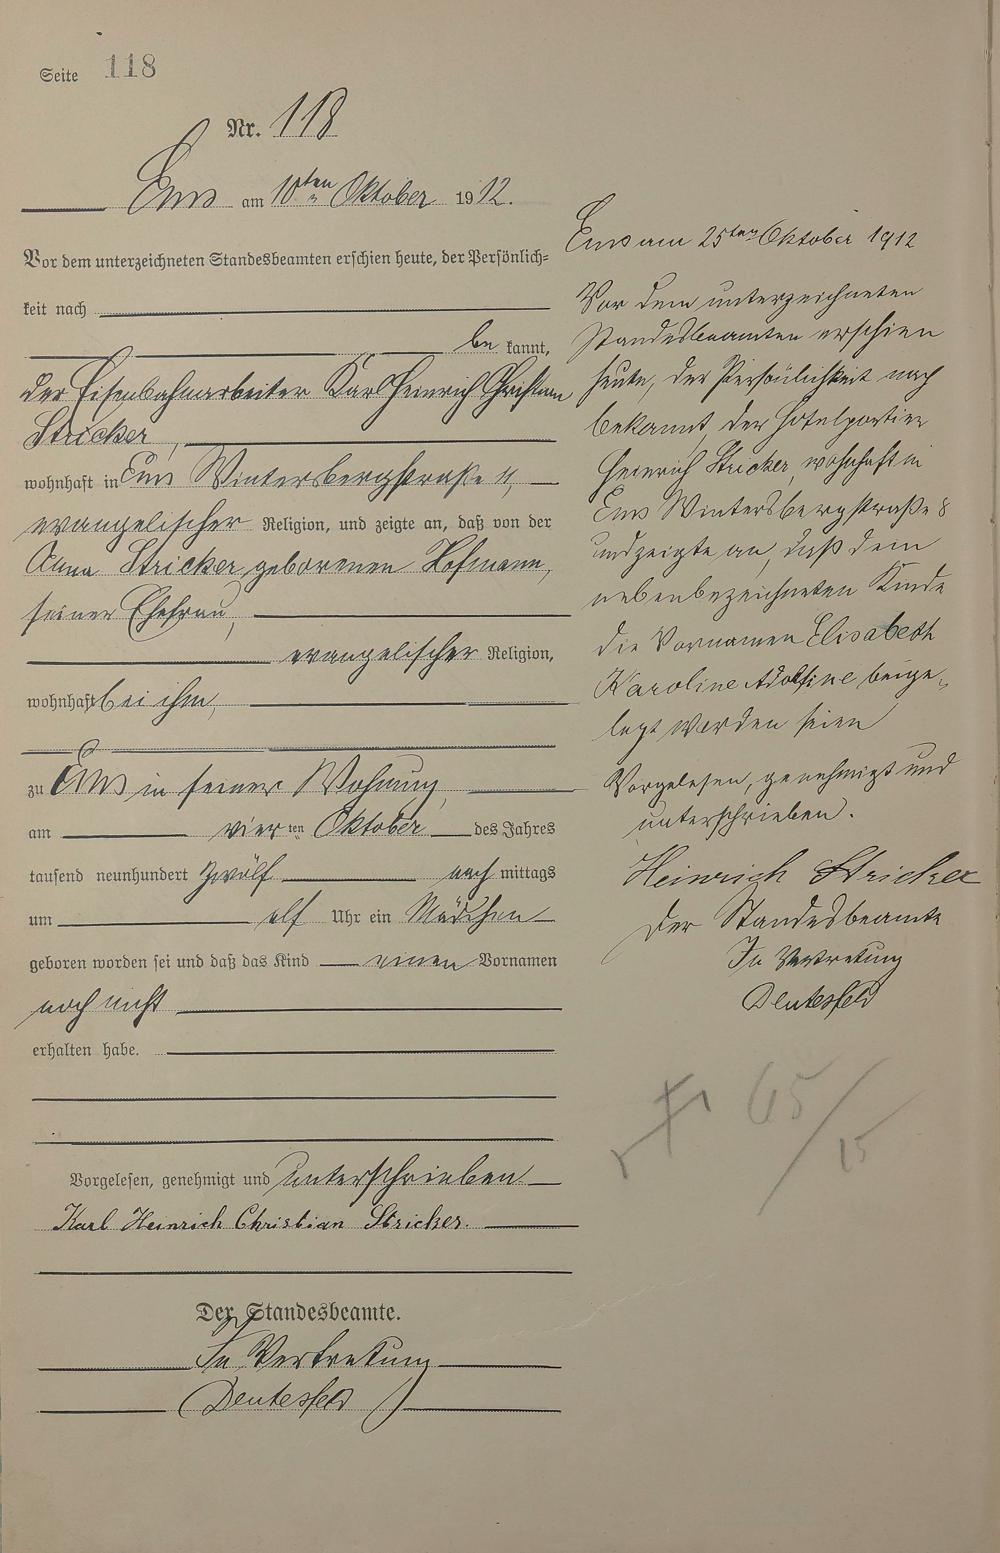 Seite 118
Nr. 118
Ems am 10ten Oktober 1912.
Vor dem unterzeichneten Standesbeamten erschien heute, der Persönlich=
keit nach
be kannt,
der Eisenbahnarbeiter Karl Heinrich Christian
Stricker,
wohnhaft in Ems Wintersbergstraße 11,
evangelischer Religion, und zeigte an, daß von der
Stricker, geborenen Hofmann,
seiner Ehefrau,
evangelischer Religion,
wohnhaft bei ihm,
zu Ems in seiner Wohnung,
am vier ten Oktober des Jahres
tausend neunhundert zwölf nach mittags
um elf Uhr ein Mädchen
geboren worden sei und daß das Kind einen Vornamen
noch nicht
erhalten habe.
Vorgelesen, genehmigt und unterschrieben
Karl Heinrich Christian Stricker.
Der Standesbeamte.
In Vertretung
Ems am 25ten Oktober 1912
Vor dem unterzeichneten
Standesbeamten erschien
heute, der Persönlichkeit nach
bekannt, der Hotelportier
Heinrich Stricker, wohnhaft in
Ems Wintersbergstraße 8
und zeigte an, daß dem
nebenbezeichneten Kinde
die Vornamen Elisabeth
Karoline Adolfine beige=
legt worden seien
Vorgelesen, genehmigt und
unterschrieben.
Heinrich Stricker
Der Standesbeamte
In Vertretung
65/15